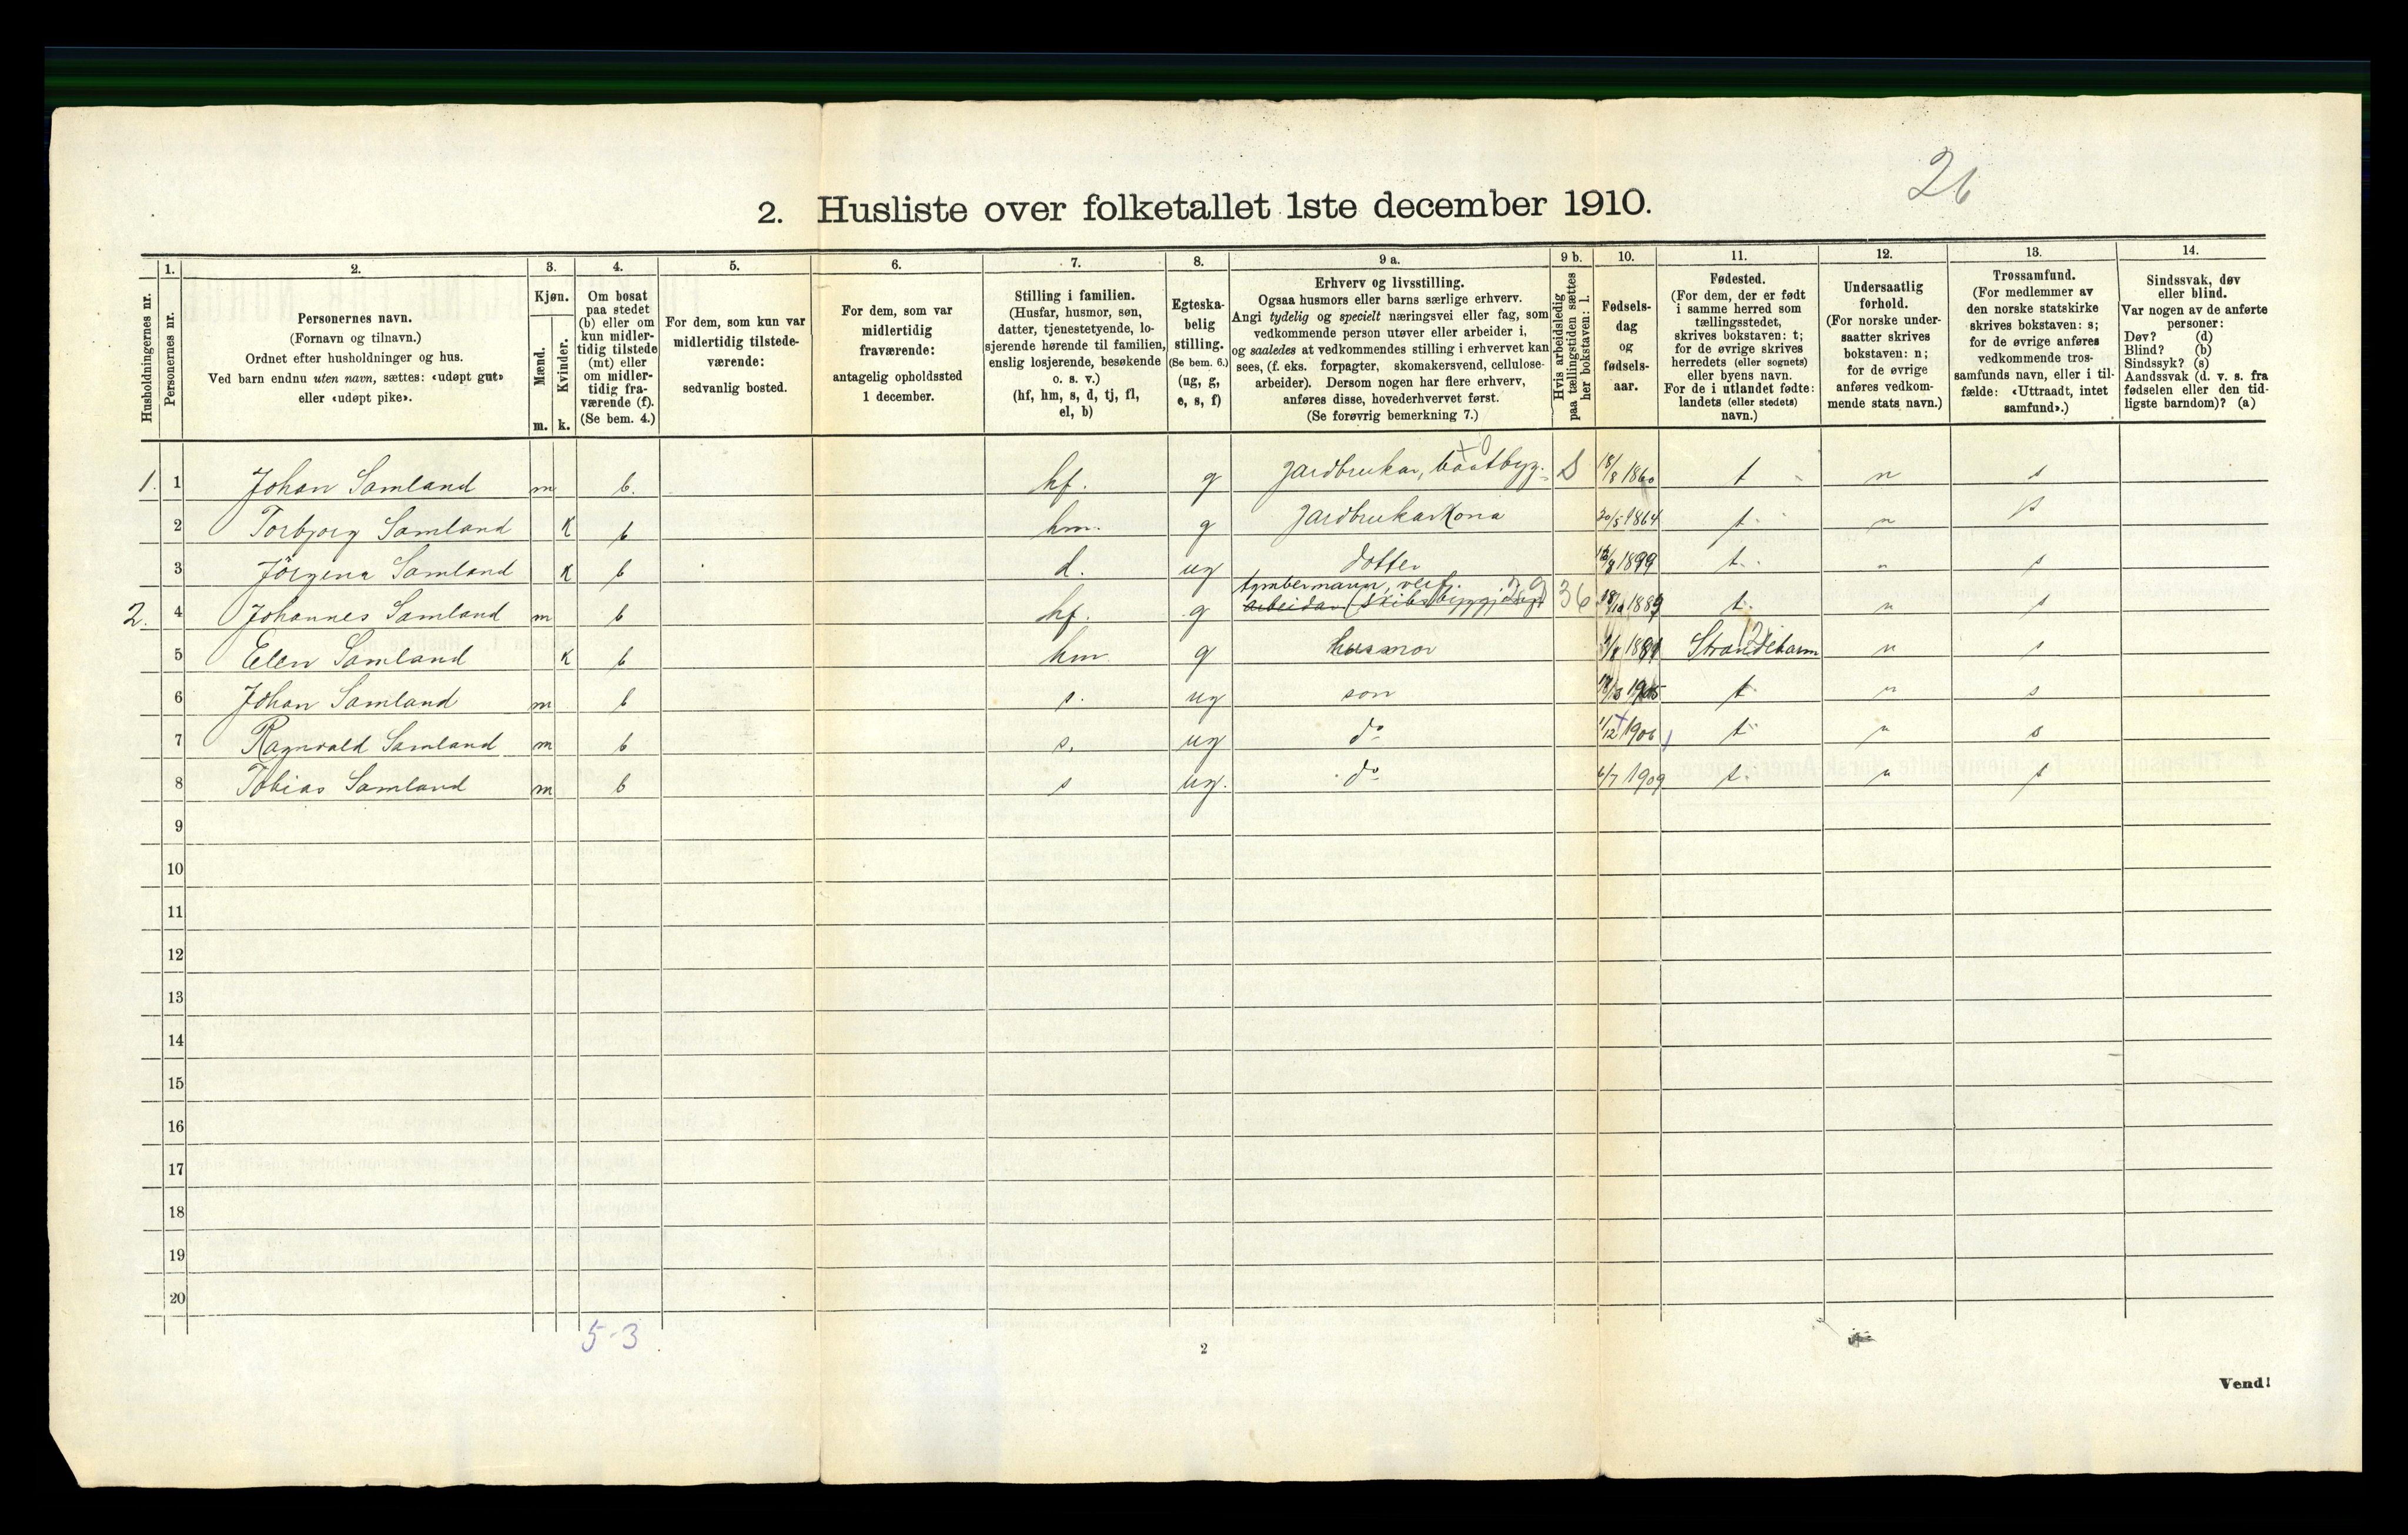 26
2. Husliste over folketallet 1ste december 1910.
Husholdningernes nr.
1.
Personernes nr.
2.
Personernes navn.
(Fornavn og tilnavn.)
Ordnet efter husholdninger og hus.
Ved barn endnu uten navn, sættes: «udøpt gut»
eller «udøpt pike».
3.
Kjøn.
Mænd.
Kvinder.
m. k.
4.
Om bosat
paa stedet
(b) eller om
kun midler-
tidig tilstede
(mt) eller
om midler-
tidig fra-
værende (f).
(Se bem. 4.)
5.
For dem, som kun var
midlertidig tilstede-
værende:
sedvanlig bosted.
6.
For dem, som var
midlertidig
fraværende:
antagelig opholdssted
1 december.
7.
Stilling i familien.
(Husfar, husmor, søn,
datter, tjenestetyende, lo-
sjerende hørende til familien,
enslig losjerende, besøkende
o. s. v.)
(hf, hm, s, d, tj, fl,
el, b)
8.
Egteska-
belig
stilling.
(Se bem. 6.)
(ug, g,
e, s, f)
9 a.
Erhverv og livsstilling.
Ogsaa husmors eller barns særlige erhverv.
Angi tydelig og specielt næringsvei eller fag, som
vedkommende person utøver eller arbeider i,
og saaledes at vedkommendes stilling i erhvervet kan
sees, (f. eks. forpagter, skomakersvend, cellulose-
arbeider). Dersom nogen har flere erhverv,
anføres disse, hovederhvervet først.
(Se forøvrig bemerkning 7.)
9 b.
Hvis arbeidsledig
paa tællingstiden sættes
her bokstaven: l.
10.
Fødsels-
dag
og
fødsels-
aar.
11.
Fødested.
(For dem, der er født
i samme herred som
tællingsstedet,
skrives bokstaven: t;
for de øvrige skrives
herredets (eller sognets)
eller byens navn.
For de i utlandet fødte:
landets (eller stedets)
navn.)
12.
Undersaatlig
forhold.
(For norske under-
saatter skrives
bokstaven: n;
for de øvrige
anføres vedkom-
mende stats navn.)
13.
Trossamfund.
(For medlemmer av
den norske statskirke
skrives bokstaven: s;
for de øvrige anføres
vedkommende tros-
samfunds navn, eller i til-
fælde: «Uttraadt, intet
samfund».)
14.
Sindssvak, døv
eller blind.
Var nogen av de anførte
personer:
Døv? (d)
Blind? (b)
Sindssyk? (s)
Aandssvak (d. v. s. fra
fødselen eller den tid-
ligste barndom)? (a)
1. 1 Johan Samland m b. hf. g jardbrukar, baatbyg. S 18/8 1860 t n s
2 Torbjorg Samland K b hm. g jardbrukarkona 30/5 1864 t. n s
3 Jörgena Samland K b d. ug dotter 1899 t. n s
2. 4 Johannes Samland m b hf. g tymbermann, verft. arbeidar (skibsbyggjeri 36 1889 t. n s
5 Elen Samland K b hm g husmor 1889 Strandebarm n s
6 Johan Samland m b s. ug son 1905 t n s
7 Ragnvald Samland m b s. ug do 1/12 1906 t n s
8 Tobias Samland m b s ug. do 6/7 1909 t. n s
9
10
11
12
13
14
15
16
17
18
19
20
5-3
2
Vend!